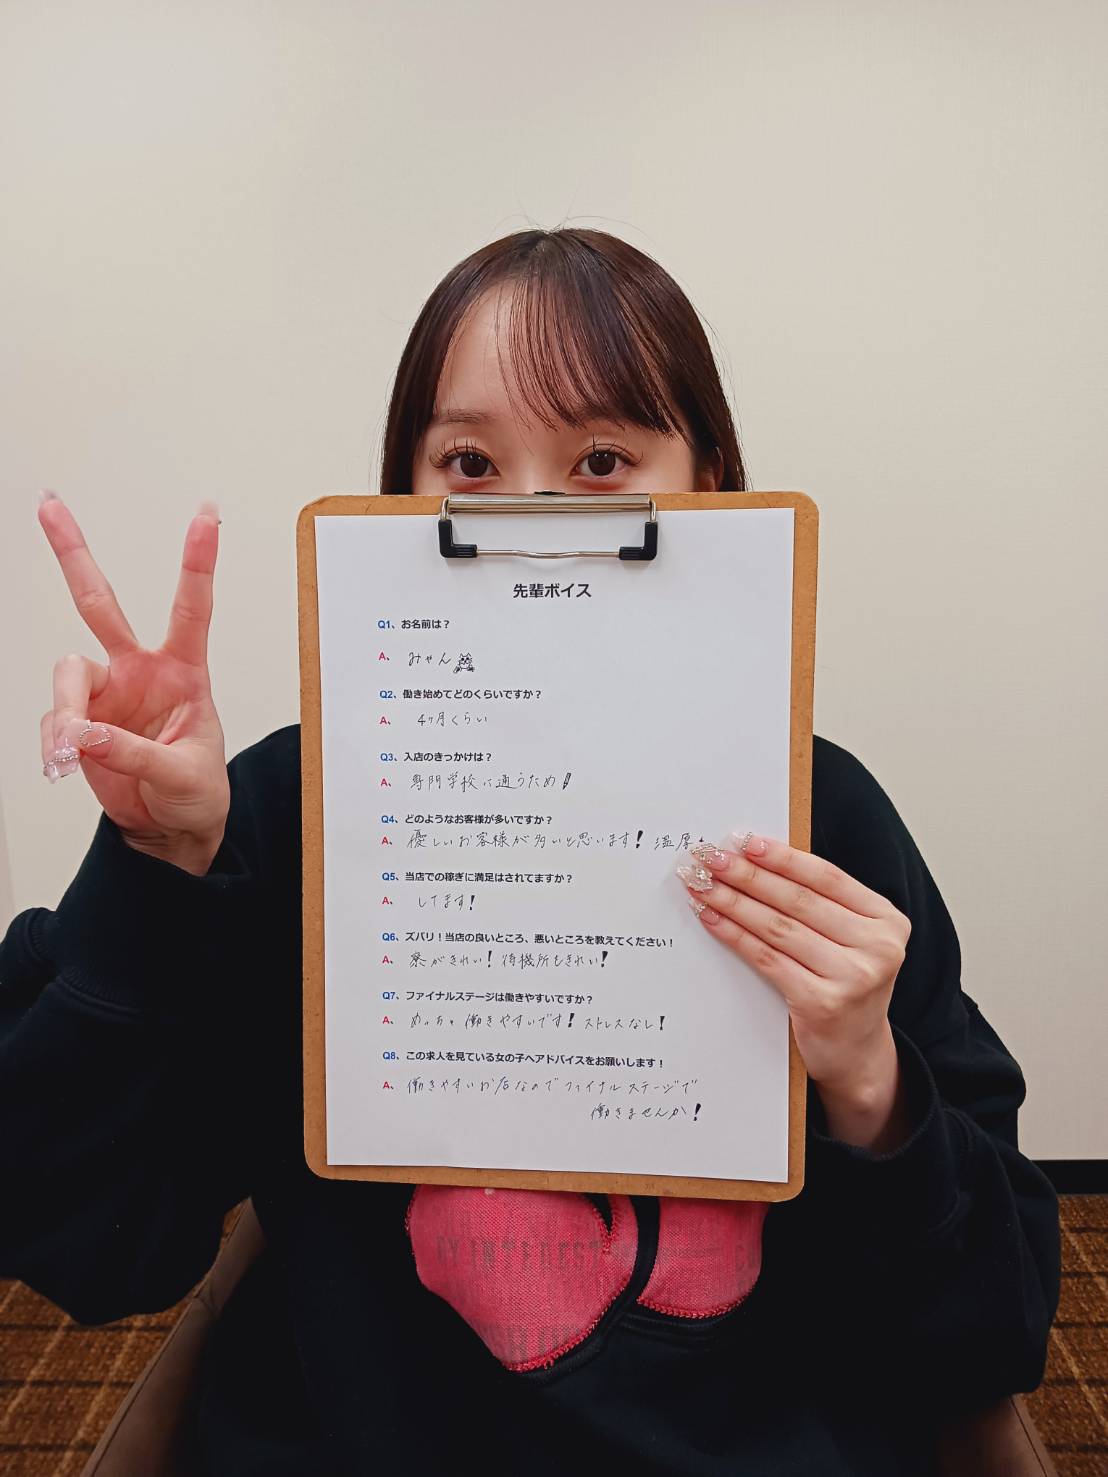 先輩ボイス
Q1、お名前は？
A、 みゃん
Q2、働き始めてどのくらいですか？
A、 4ヶ月くらい
Q3、入店のきっかけは？
A、 専門学校に通うため!
Q4、どのようなお客様が多いですか？
A、 優しいお客様が多いと思います! 温厚
Q5、当店での稼ぎに満足はされてますか？
A、 してます!
Q6、ズバリ！当店の良いところ、悪いところを教えてください！
A、 寮がきれい! 待機所もきれい!
Q7、ファイナルステージは働きやすいですか？
A、 めっちゃ働きやすいです! ストレスなし!
Q8、この求人を見ている女の子へアドバイスをお願いします！
A、 働きやすいお店なのでファイナルステージで
働きませんか!
BY INTEREST